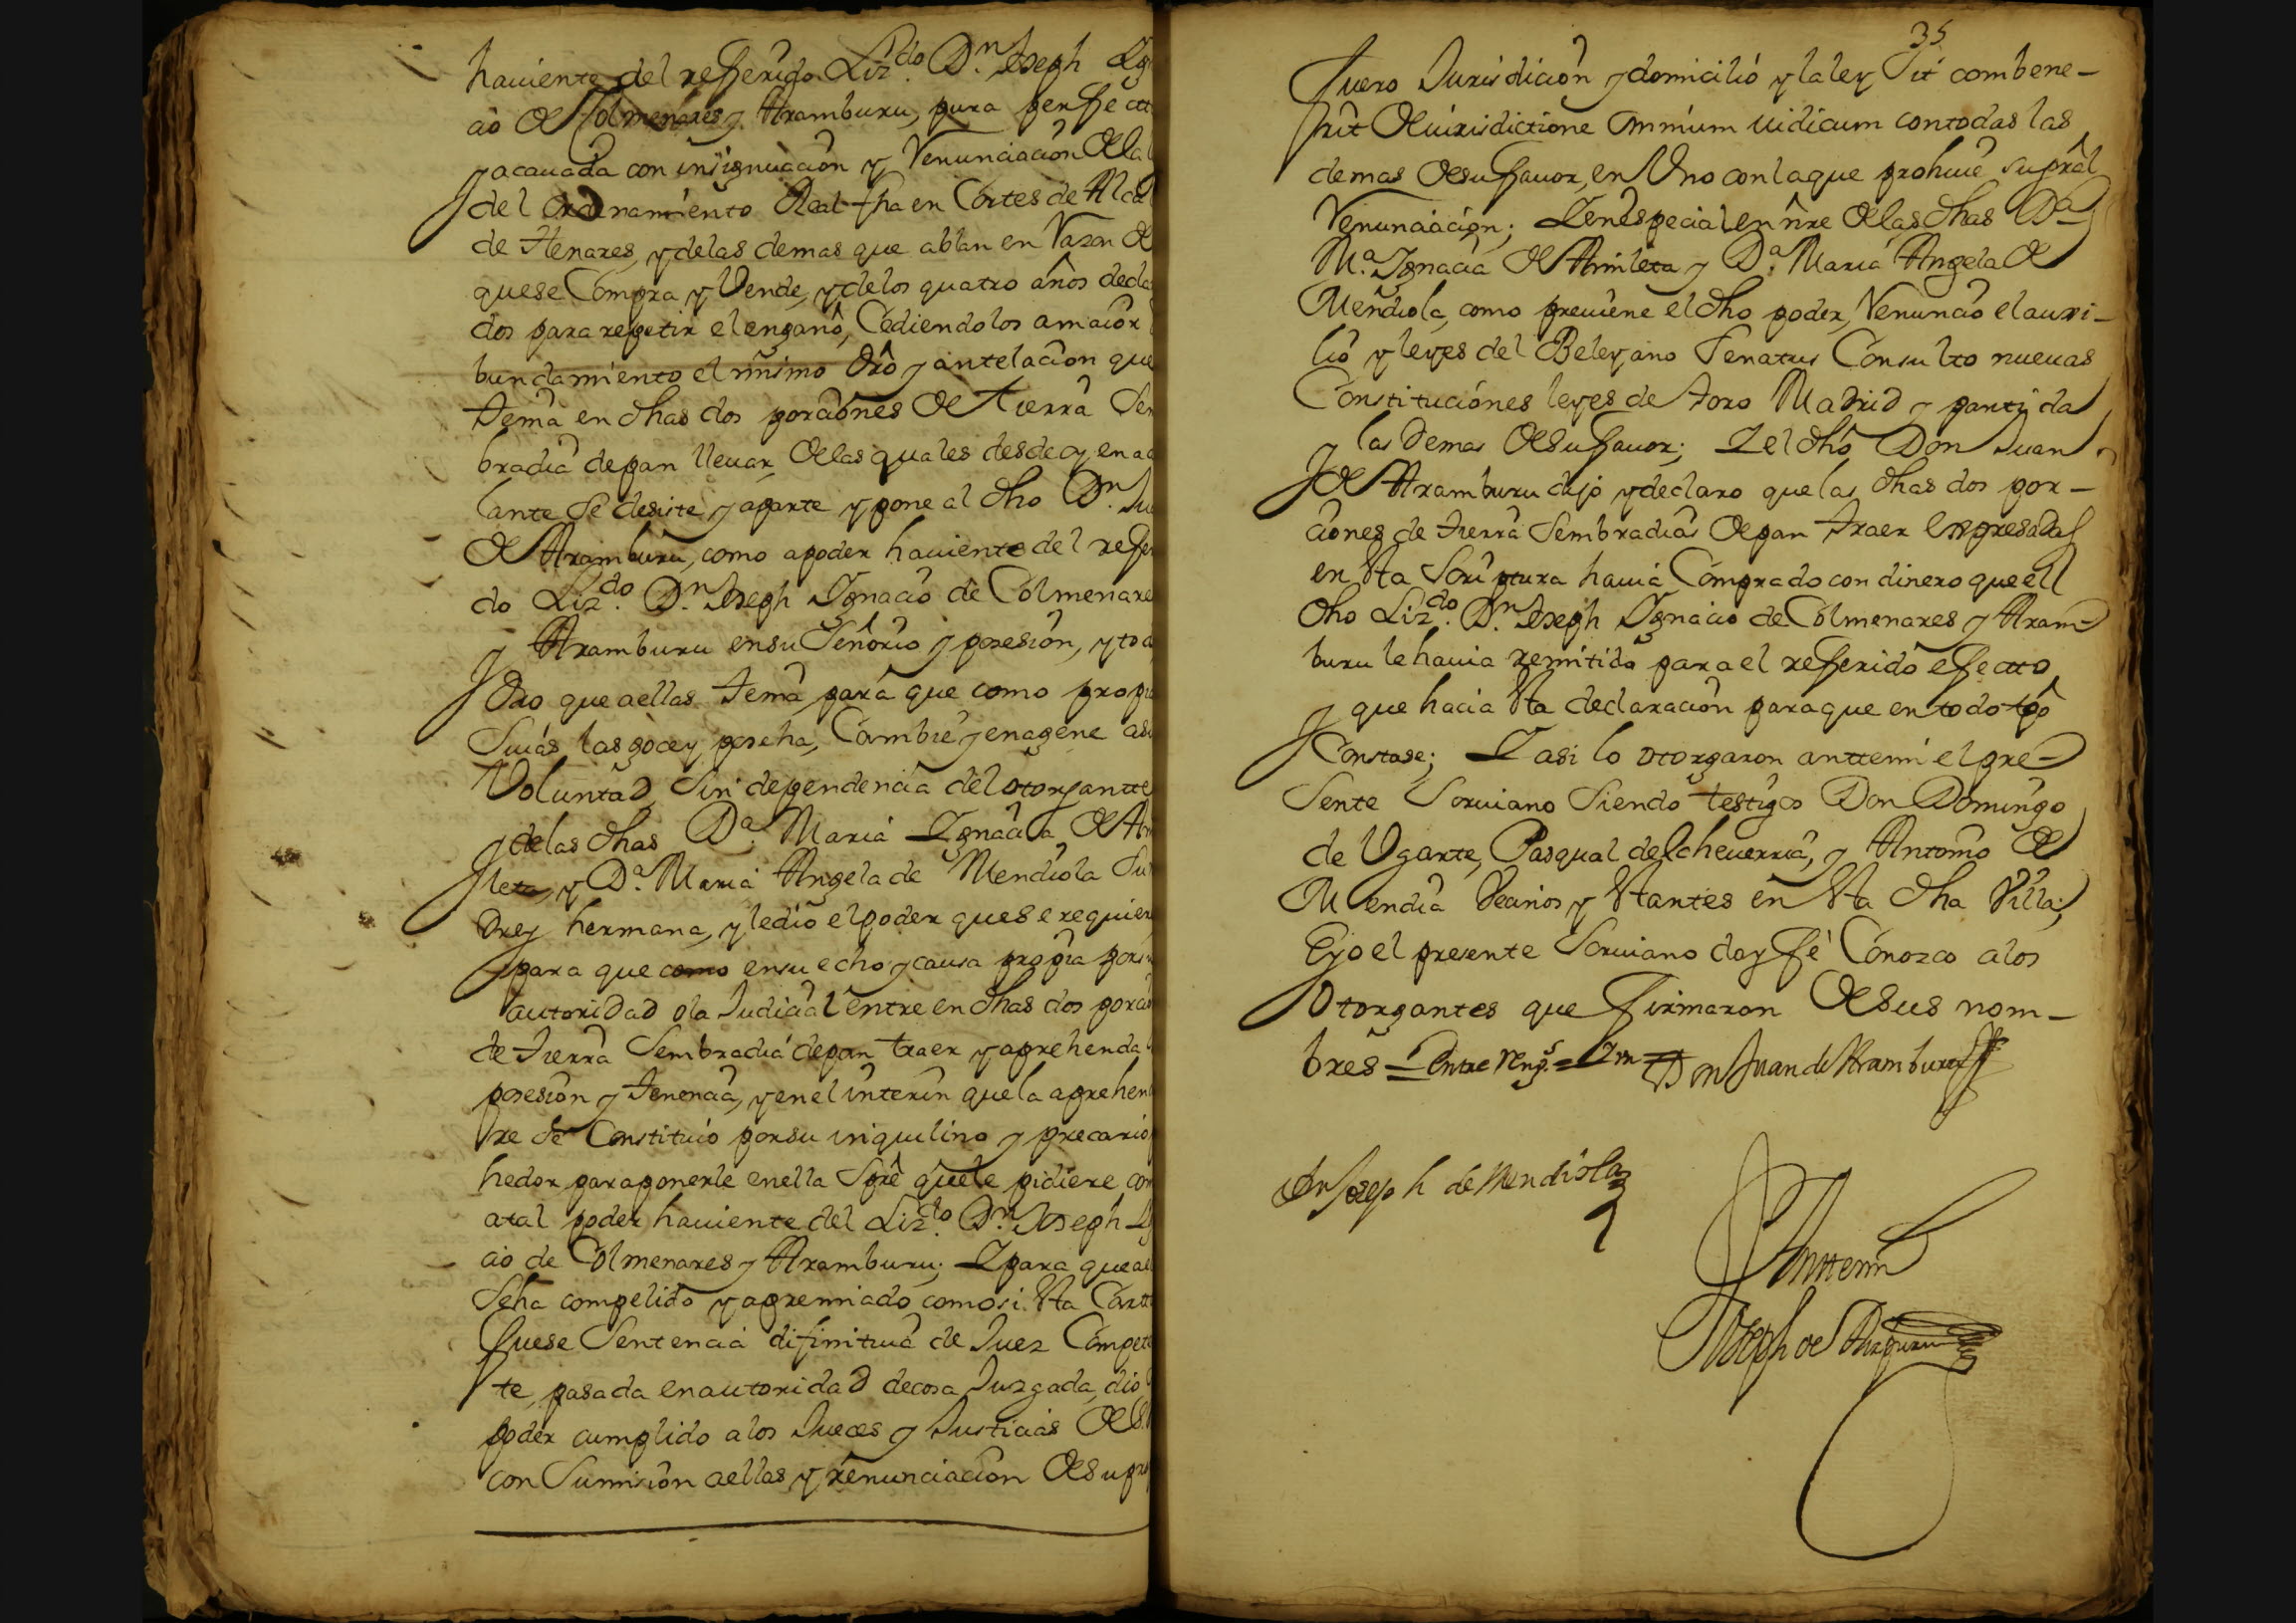 haviente del referido Liz.do D.n Joseph Ygn
cio de Colmenares y Aramburu, pura perfecta
y acavada con insignuacion y renunciacion de la l
del Ordenamiento Real fha en Cortes de Alcal
de Henares, y de las demas que ablan en razon de
que se Compra y Vende, y de los quatro años decla
dos para repetir el engaño, Cediendolos a maior
bundamiento el mismo dro y antelacion que
tenia en dhas dos porciones de tierra Sem
bradia de pan llevar, de las quales desde oy en ade
lante se desiste y aparte y pone al dho D.n Jua
de Aramburu, como a poder haviente del referi
do Liz.do D.n Joseph Ygnacio de Colmenares
y Aramburu en su Señorio y posesion, y tod
dro que a ellas tenia para que como propi
Suias las goce y poseha, Cambie y enagene a su
Voluntad, sin dependencia del otorgantte
y de las dhas D.a Maria Ygnacia de Am
leta, y D.a Maria Angela de Mendiola Su
dre y hermana, y le dio el poder que se requier
para que como en su echo y causa propia por su
autoridad o la Judicial entre en dhas dos porcio
de tierra Sembradia de pan traer y aprehenda
posesion y tenencia, y en el interin que la aprehen
re se Constituio por su inquilino y precario
hedor para ponerle en ella Spre que le pidiere com
a tal poder haviente del Liz.do D.n Joseph Yg
cio de Colmenares y Aramburu; Y para que a el
Seha compelido y apremiado como si Sta Cartt
fuese Sentencia difinitiva de Juez Compet
te, pasada en autoridad de cosa Juzgada, dio
poder cumplido a los Jueces y Justicias de S.
con Sumision a ellas y renunciacion de su prop
35
fuero Jurisdicion y domicilio y la ley Sit combene-
rit de iurisdictione omnium iudicum con todas las
demas de su favor, en Uno con la que prohive Su gral
renunciacion; Y en especial en nre de las dhas D.a
M.a Ygnacia de Amileta y D.a Maria Angela de
Mendiola, como previene el dho poder, renuncio el auxi-
lio y leyes del Beleyano Senatus Consulto nuevas
Constituciones leyes de toro Madrid y partida
y las demas de su favor; Y el dho Don Juan
de Aramburu dijo y declaro que las dhas dos por-
ciones de tierra Sembradias de pan traer expresadas
en Sta Scriptura havia Comprado con dinero que el
dho Liz.do D.n Joseph Ygnacio de Colmenares y Aram-
buru le havia remitido para el referido efectto
y que hacia Sta declaracion para que en todo tpo
Constase; Y asi lo otorgaron anttemi el pre-
Sente Scrivano Siendo testigos Don Domingo
de Ugarte, Pasqual de Echeverria, y Antonio de
Mendia Vecinos y Stantes en Sta dha Villa;
E yo el presente Scrivano doy fe Conozco a los
Otorgantes que firmaron de sus nom-
bres = Entre reng.s = Don Juan de Aramburu
Dn Joseph de Mendiola
Anttemi
Joseph de